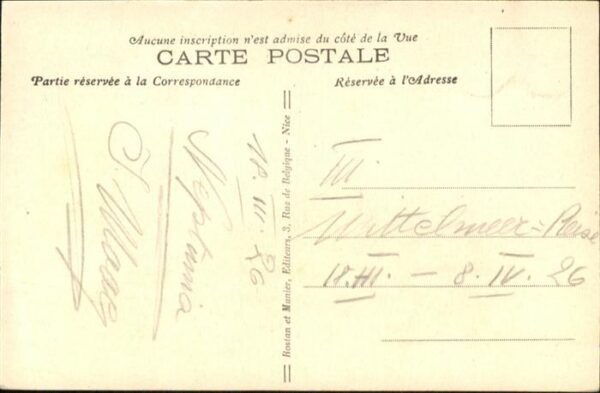 Aucune inscription n'est admise du côté de la Vue
CARTE POSTALE
Partie réservée à la Correspondance
Réservée à l'Adresse
18. III. 26
Neptunia
Rostan et Munier, Editeurs, 3, Rue de Belgique - Nice
III.
Mittelmeer=Reise
18. III. — 8. IV. 26